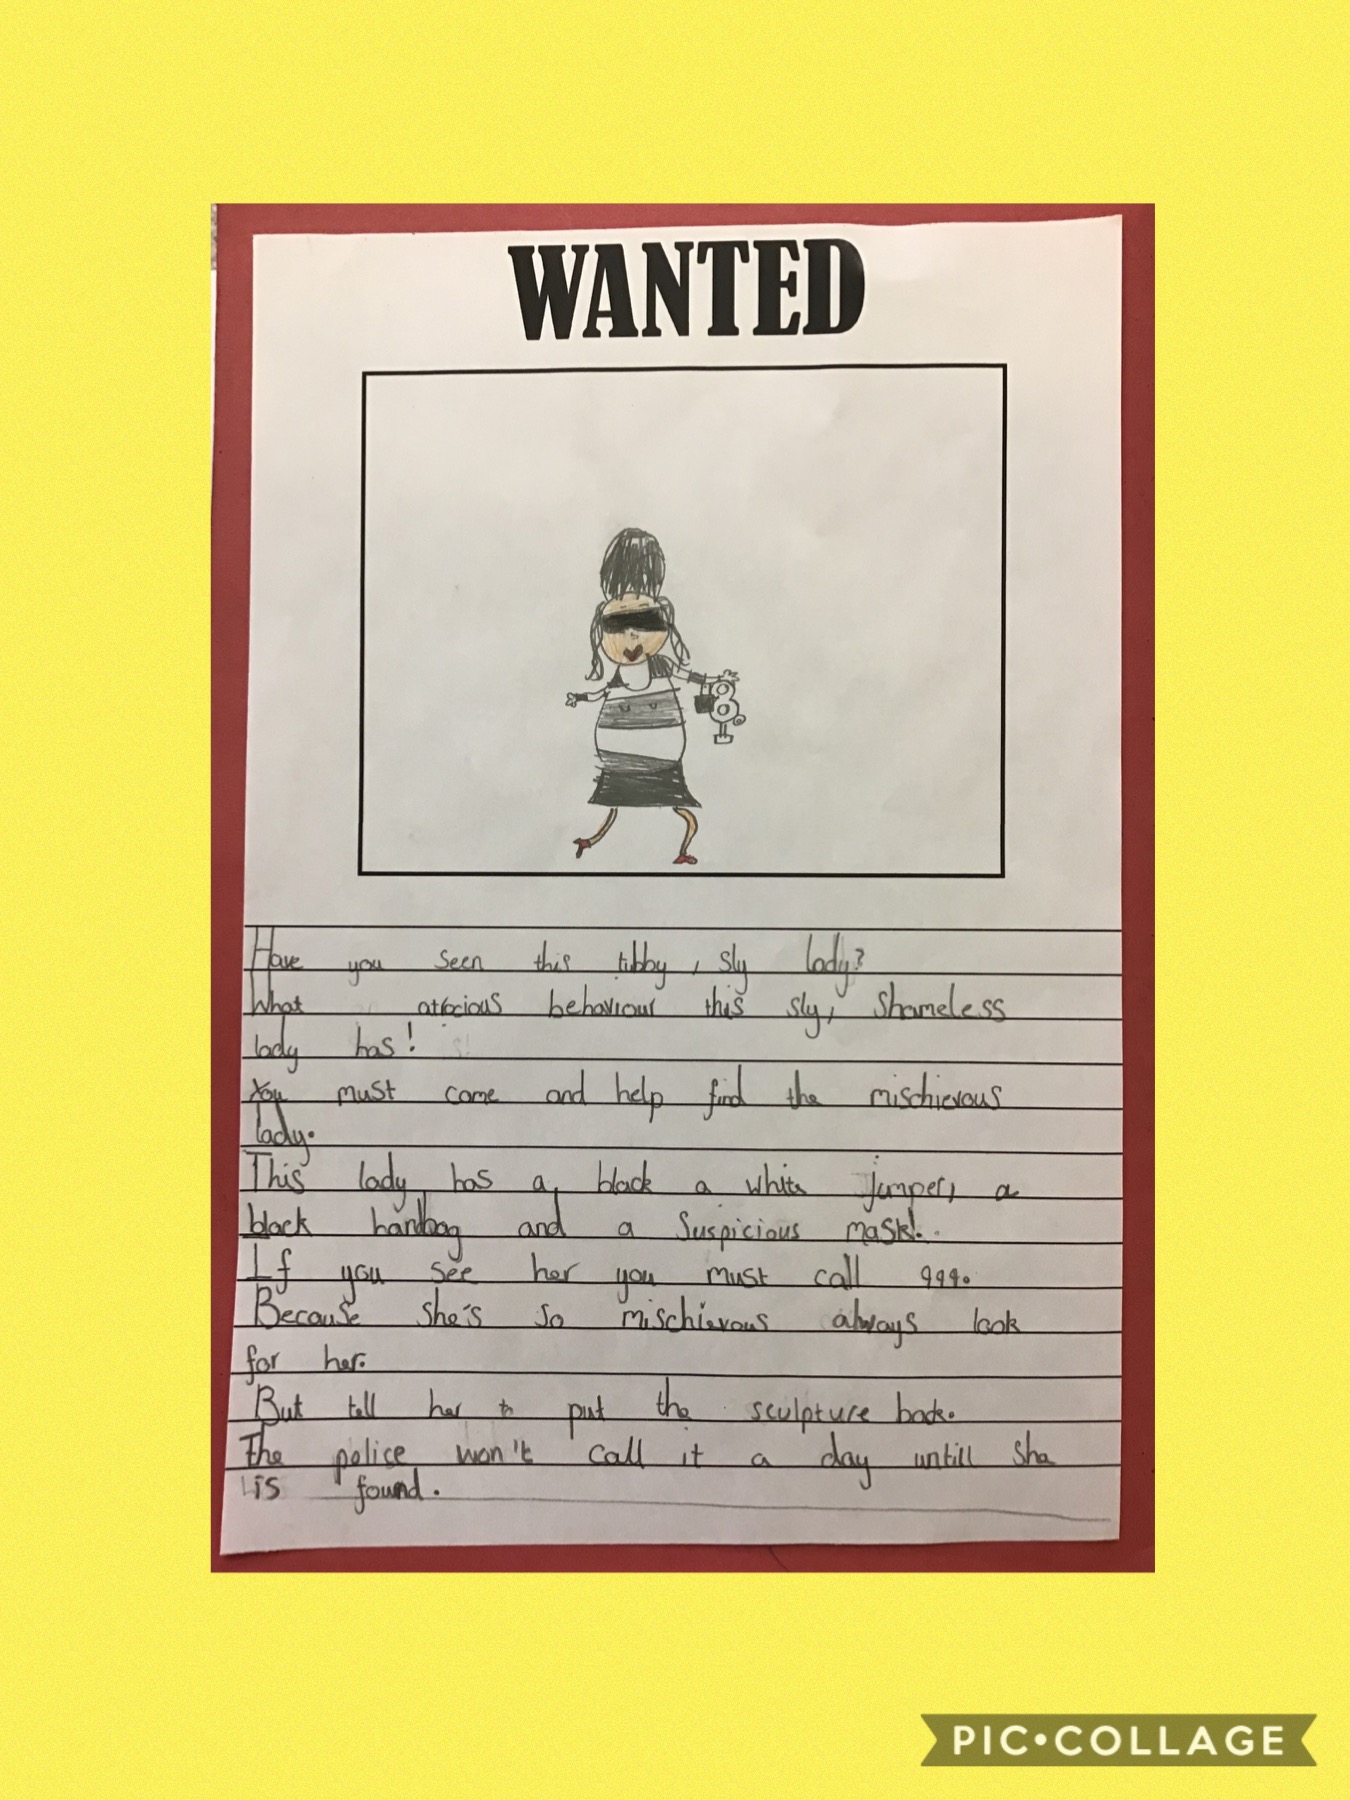 WANTED
Have you seen this tubby, sly lady?
What atrocious behaviour this sly, shameless
lady has!
You must come and help find the mischievous
lady.
This lady has a black a white jumper, a
black handbag and a suspicious mask!.
If you see her you must call 999.
Because she's so mischievous always look
for her.
But tell her to put the sculpture back.
The police won't call it a day untill she
is found.
PIC•COLLAGE